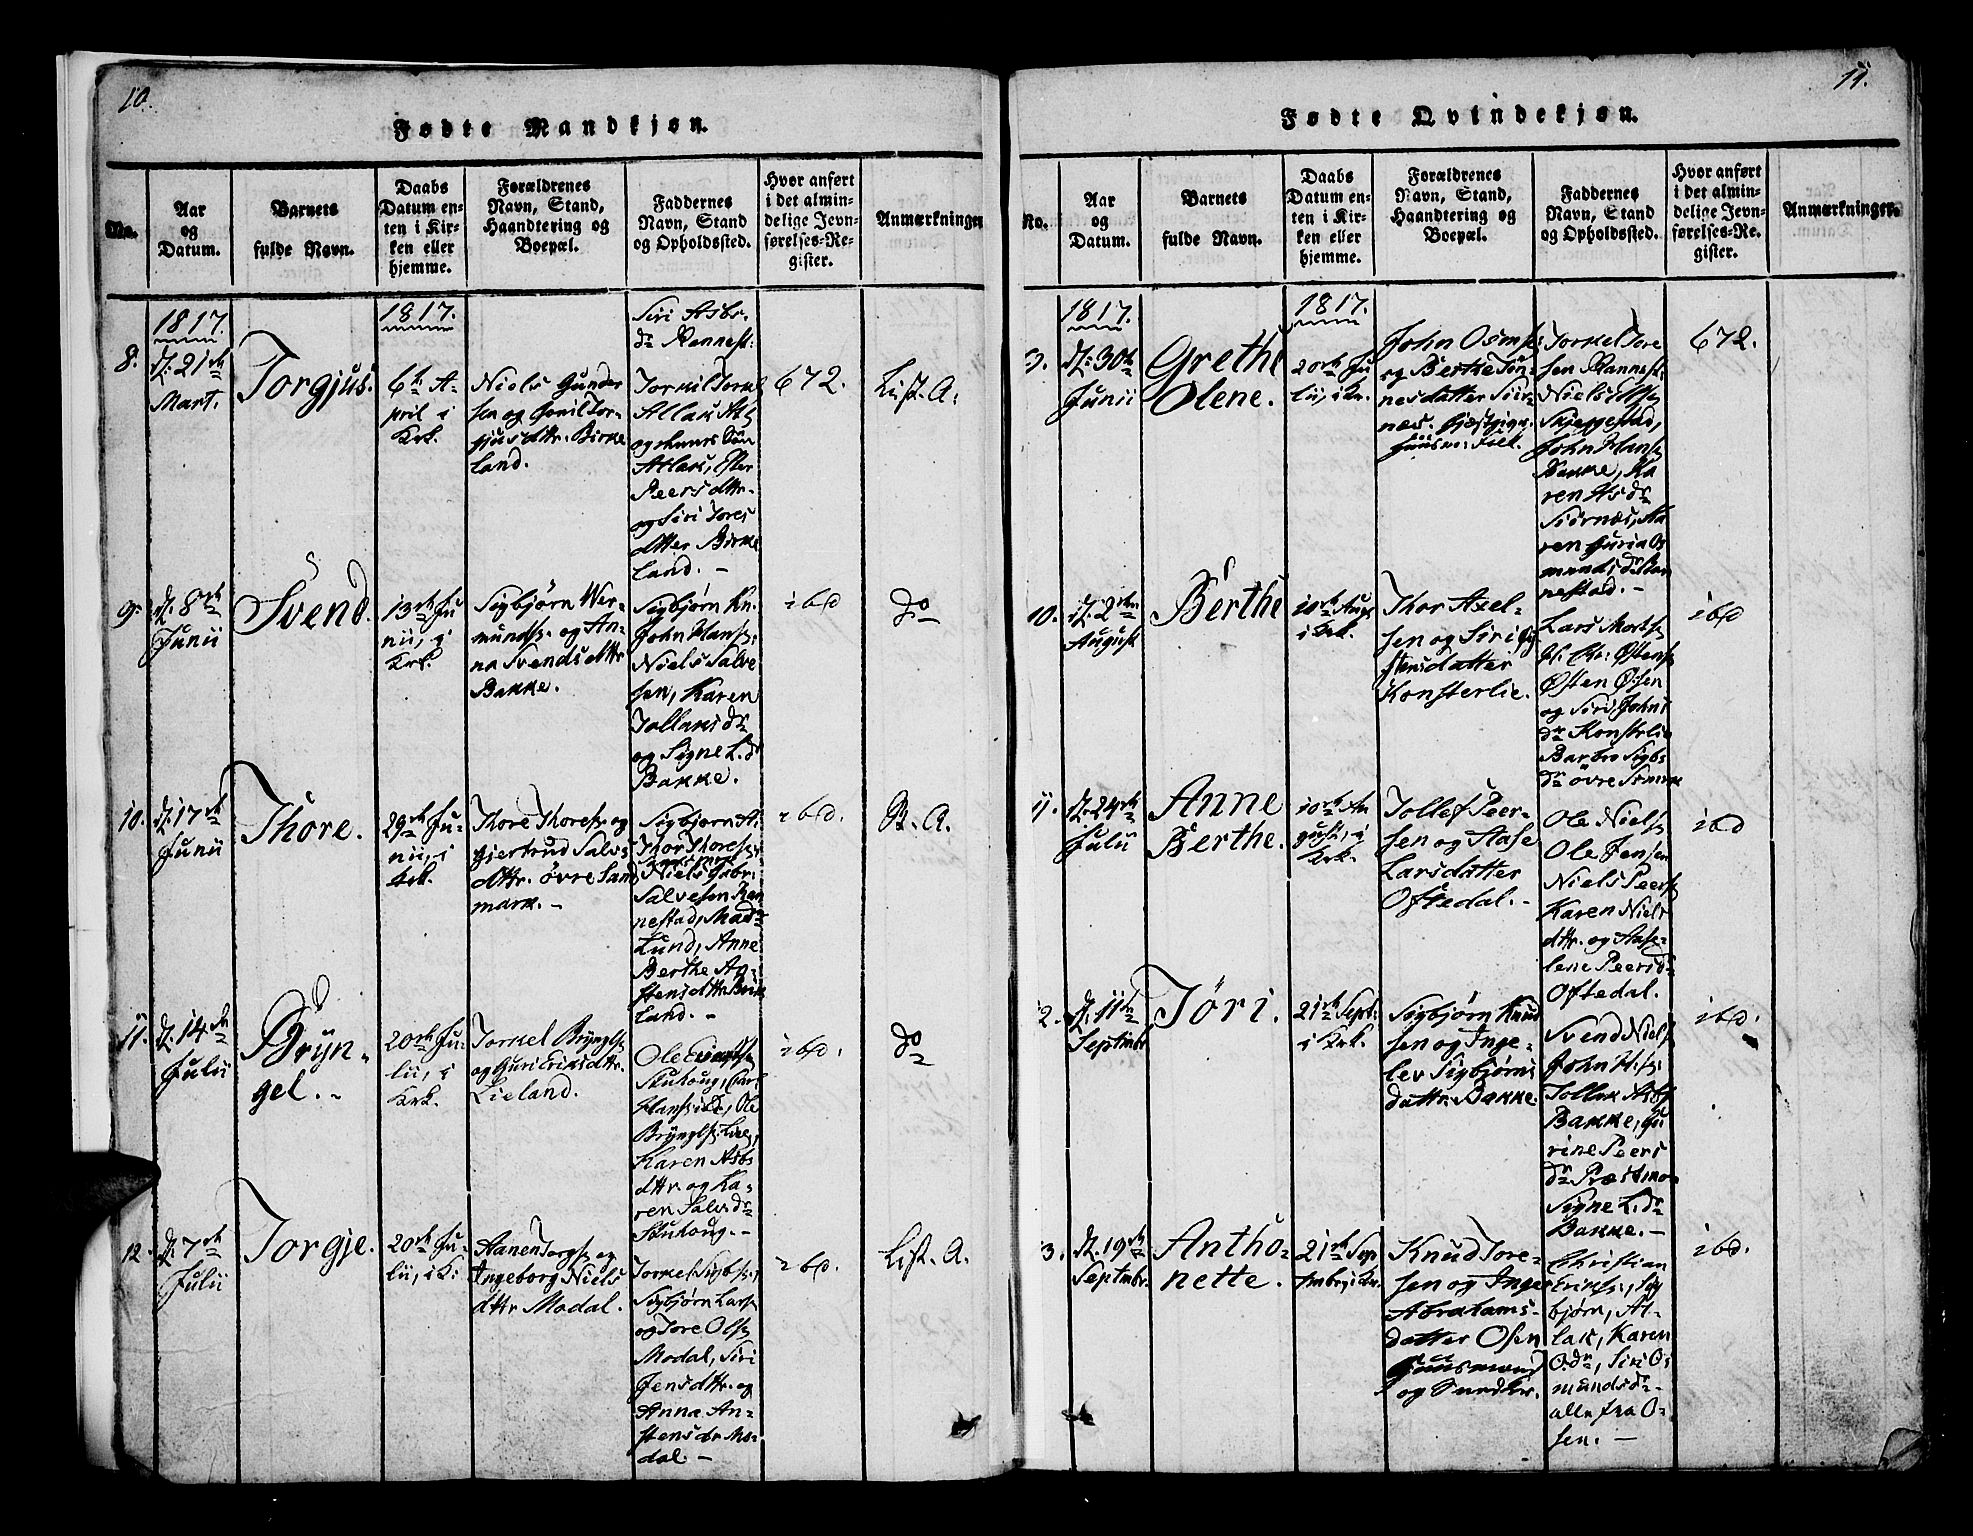 10.
Fødte Mandkjøn.
No.
Aar
og
Datum.
Barnets
fulde Navn.
Daabs
Datum en-
ten i Kir-
ken eller
hjemme.
Forældrenes
Navn, Stand,
Haandtering og
Boepæl.
Faddernes
Navn, Stand
og Opholdssted.
Hvor anført
i det almin-
delige Jevn-
førelses-Re-
gister.
Anmærkninger
8.
1817.
d. 21de
Mart.
Torgjus.
1817.
6te A-
pril i
Krk.
Niels Gunder
sen og
jusdttr. Birke
land.
Siri Asbr.
dr
Torkil
og
Peersdttr.
og Siri Tores
dtter Birke
land. -
672.
List. A.
9.
d. 8de
Junii
Svend.
13de Ju
nii, i
Krk.
Sigbjørn Wer-
munds. og An-
na Svendsdttr
Bakke.
Sigbjørn Kn.
John Hans.
Niels Salve
sen, Karen
Tollaksdr
og Signe L.dr
Bakke.
ibd
do
10.
d. 17de
Junii
Thore.
29de Ju-
nii, i
Krk.
Thore Thores. og
Gjertrud Salvs
dttr. øvre Land
mark. -
Sigbjørn A.
Thor Thores.
Niels Gabr.
Salvesen Ran
nestad, Mad
Lund, Anne
Berthe
stensdttr Birk
land. -
ibd.
B. A.
11.
d. 14de
Julii
Brÿn-
gel. -
20de Ju-
lii, i
Krk.
Torkel Brÿngls.
og Guri Eriksdttr.
Lieland.
Ole
Skuhoug,
Hans. Ole
Brÿngls. Lieg,
Karen Asbs
dttr. og Ka-
ren Salvs.dr
Skuhoug. -
ibd.
do
12.
d. 7de
Julii
Torgje.
20de Ju-
lii, i K.
Aanen Torgs. og
Ingeborg Niels
dttr Modal.
Torkel Sigbs.,
Sigbjørn Lars.
og Tore Ols.
Modal, Siri
Jensdttr. og
Anne An-
stensdr Mo-
dal. -
ibd.
List. A.
11.
Fødte Qvindekjøn.
No.
Aar
og
Datum.
Barnets
fulde Navn.
Daabs
Datum en-
ten i Kir-
ken eller
hjemme.
Forældrenes
Navn, Stand,
Haandtering og
Boepæl.
Faddernes
Navn, Stand
og Opholdssted.
Hvor anført
i det almin-
delige Jevn-
førelses-Re-
gister.
Anmærkninger.
9.
1817.
d. 30te
Junii
Grethe
Olene.
1817.
20de Ju
lii, i Kr.
John Osmds
og Berthe Tøn-
nesdatter Siir-
næs.
Torkel Tore
sen Rannest.
Niels
Skjeggestad,
John Hans.
Bakke, Ka
ren Asdr
Siirnæs, Ka
ren Guria Os
mundsdr Ran
nestad. -
672.
10.
d. 2den
August
Berthe
10de Aug.
i Krk.
Thor Axel-
sen og Siri
stensdatter
Konsterlie.
Lars
Østens.
Østen Øssen
og Siri Johns
dr Konsterlie
Barbro Sigbs
dr øvre
ibd
11.
d. 24de
Julii
Anne
Berthe.
10de Au
gust, i
Krk.
Tollef Peer-
sen og Aase
Larsdatter
Oftedal. -
Ole Niels.
Ole Jensen
Niels Peers.
Karen Niels
dttr. og Aase-
lene Peersdr
Oftedal.
ibd
12.
d. 11te
Septmbr.
Tøri.
21de Sept.
i Krk.
Sigbjørn Knud
sen og Inge-
lev Sigbjørns
dattr. Bakke.
Svend Niels.
John H.s.
Tollak Asbs
Bakke, Gu
rine Peers
dr Præstmo
Signe L.dr
Bakke. -
ibd.
13.
d. 19de
Septmbr.
Antho-
nette.
21de Sep-
tmbr, i Kr.
Knud Tore-
sen og Inger
Abrahams-
datter Osen
Huusmand
og
Christian
Eriks., Sig
bjørn, At-
lak, Karen
O.dr, Siri Os
mundsdr -
alle fra O-
sen. -
ibd.